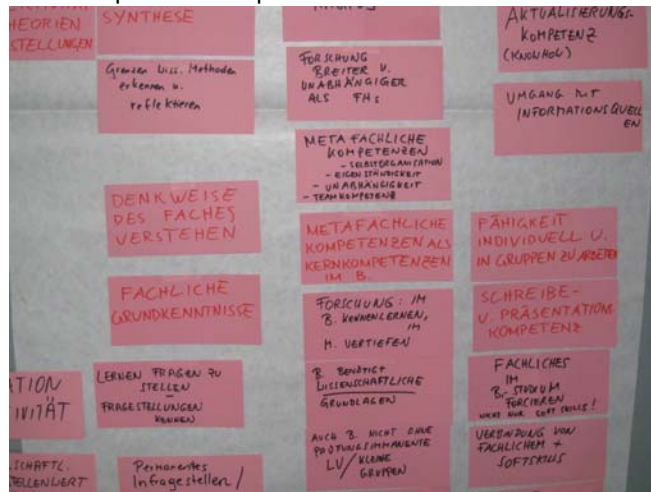 HEORIEN
STELLUNGEN
SYNTHESE
Grenzen wiss. Methoden
erkennen u.
reflektieren
DENKWEISE
DES FACHES
VERSTEHEN
FACHLICHE
GRUNDKENNTNISSE
ATION
IVITÄT
LERNEN FRAGEN ZU
STELLEN
–
FRAGESTELLUNGEN
KENNEN
SCHAFTL.
Permanentes
Infragestellen /
FORSCHUNG
BREITER U.
UNABHÄNGIGER
ALS FHs
METAFACHLICHE
KOMPETENZEN
- SELBSTORGANISATION
- EIGENSTÄNDIGKEIT
- UNABHÄNGIGKEIT
- TEAMKOMPETENZ
METAFACHLICHE
KOMPETENZEN ALS
KERNKOMPETENZEN
IM B.
FORSCHUNG: IM
B. KENNENLERNEN,
IM
M. VERTIEFEN
B. BENÖTIGT
WISSENSCHAFTLICHE
GRUNDLAGEN
AUCH B. NICHT OHNE
PRÜFUNGSIMMANENTE
LV / KLEINE
GRUPPEN
AKTUALISIERUNGS-
KOMPETENZ
(KNOWHOW)
UMGANG MIT
INFORMATIONSQUELL
EN
FÄHIGKEIT
INDIVIDUELL U.
IN GRUPPEN ZU ARBEITEN
SCHREIBE-
U. PRÄSENTATIONS
KOMPETENZ
FACHLICHES
IM
B.-STUDIUM
FORCIEREN
NICHT NUR SOFT SKILLS!
VERBINDUNG VON
FACHLICHEM +
SOFTSKILLS